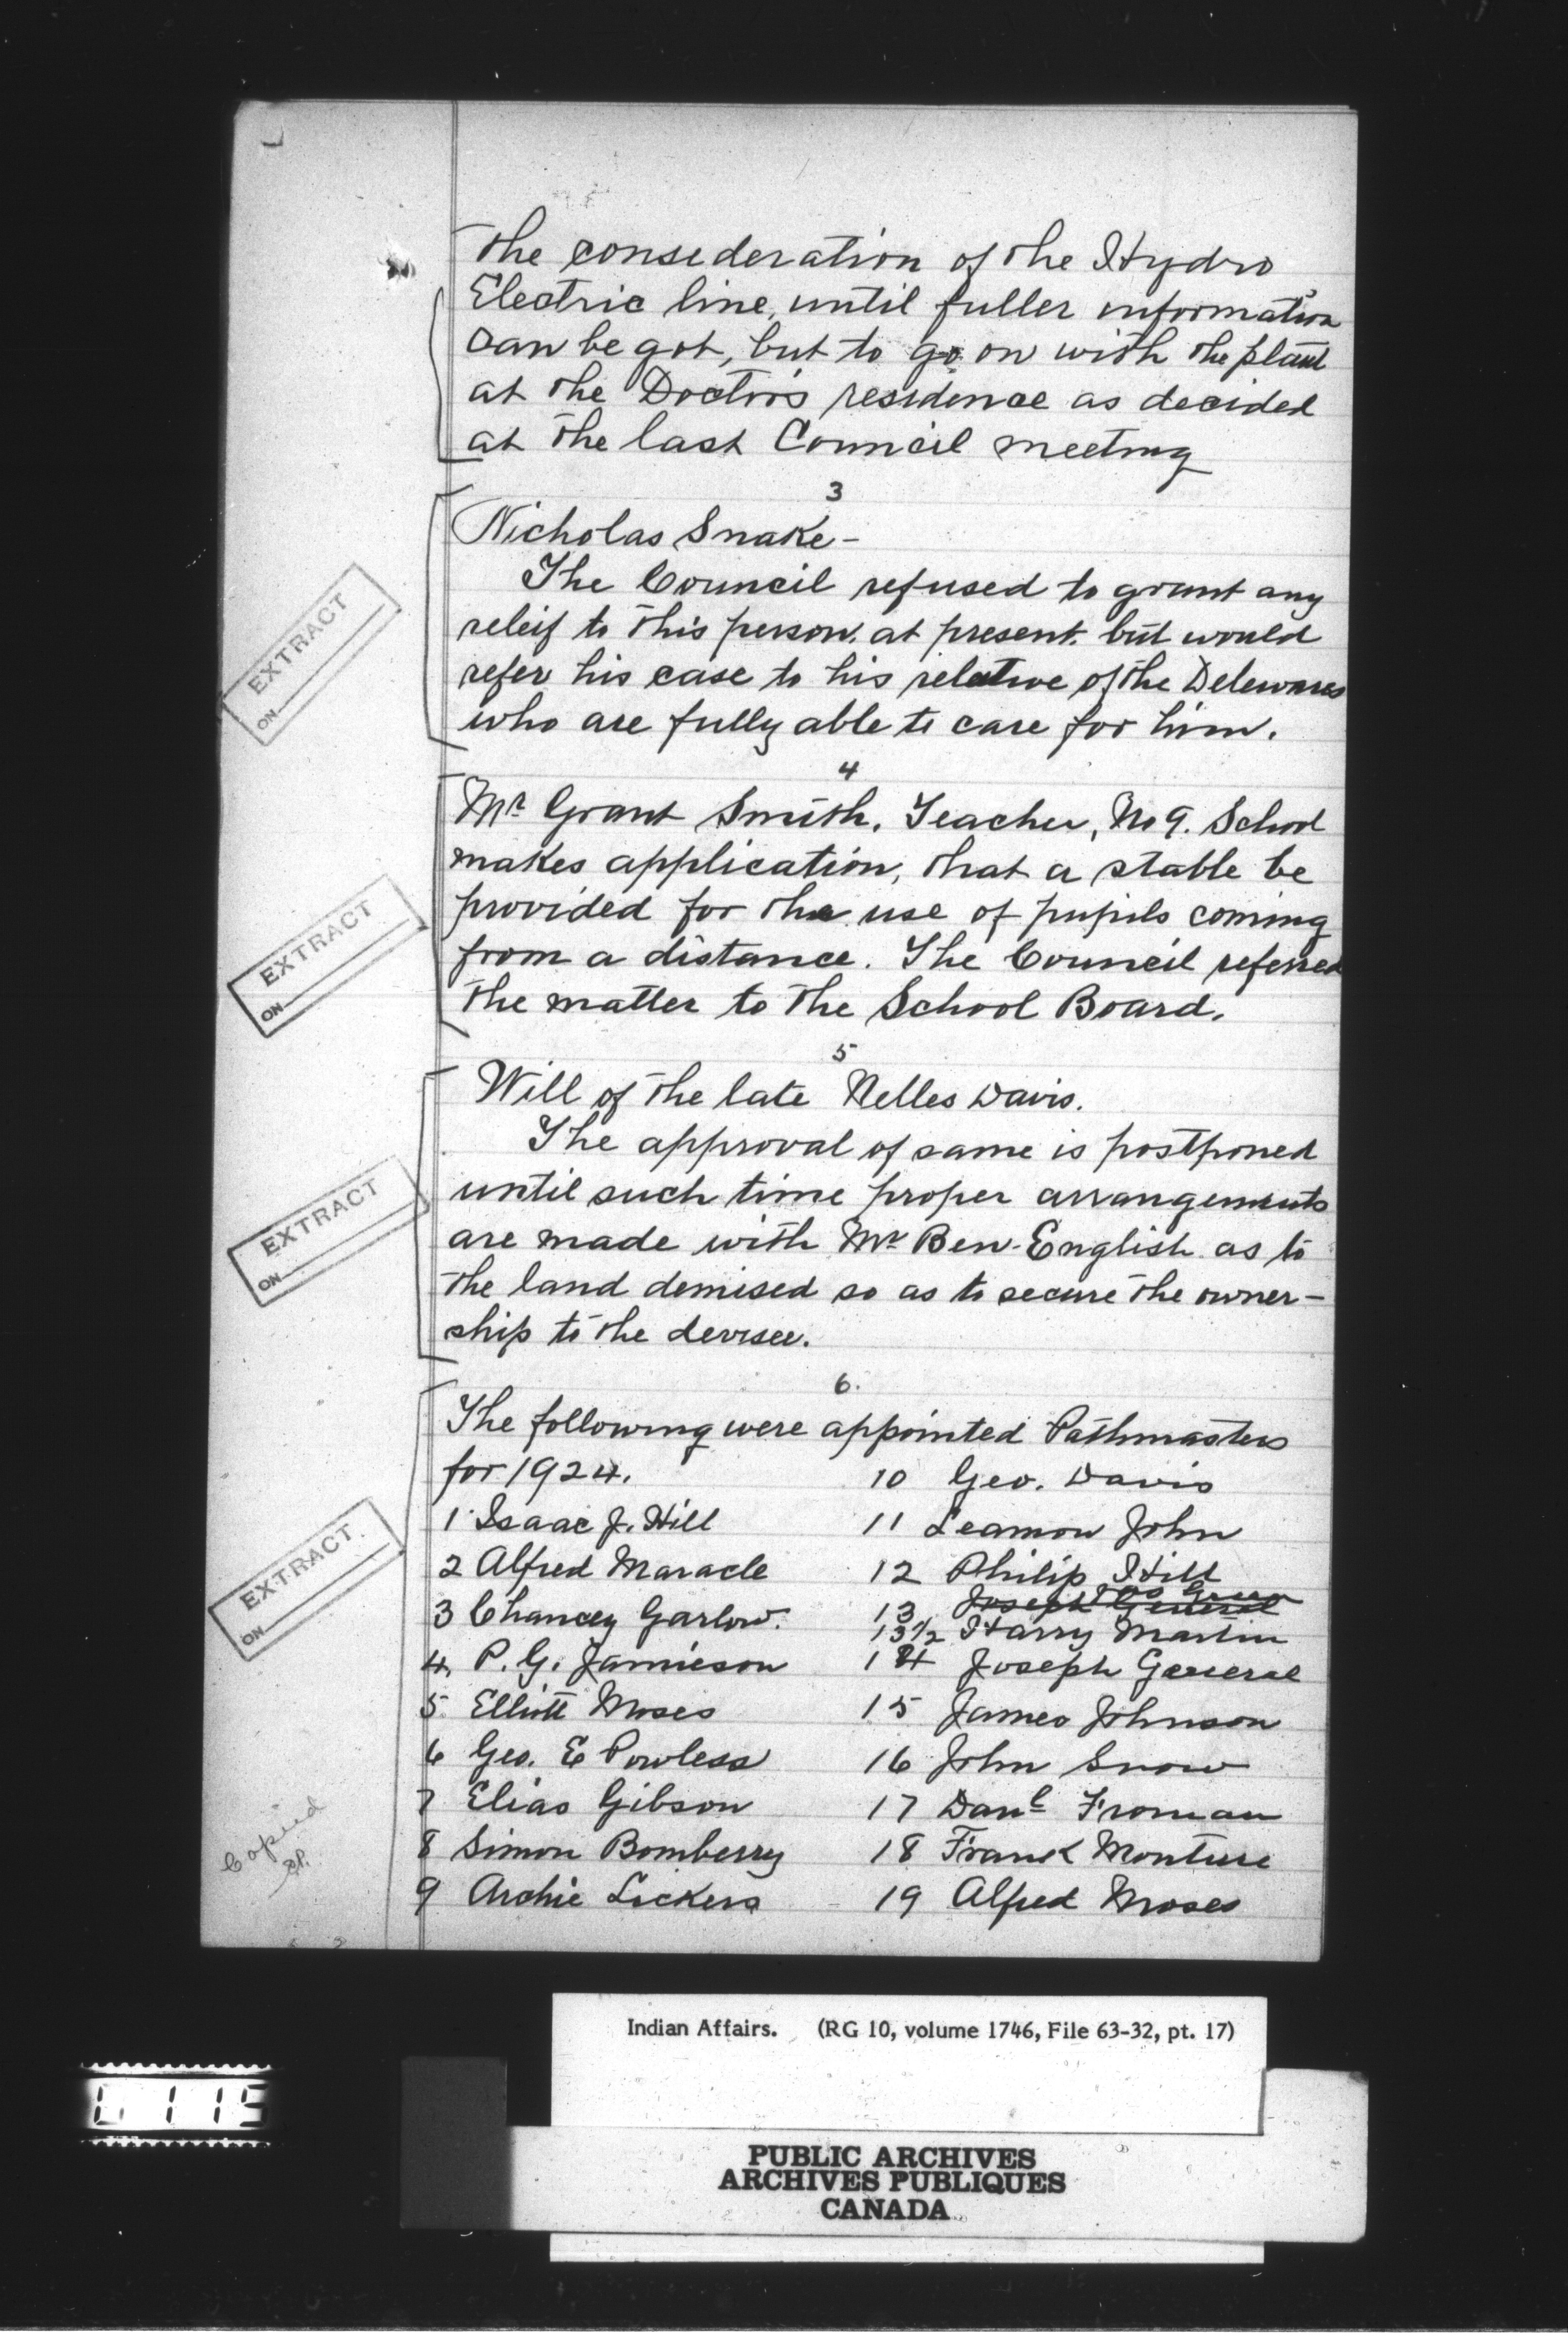 the consederation of the Hydro
Electric line, until fuller information
can be got, but to go on with the plant
at the Doctor's residence as decided
at the last Council meeting
3
Nicholas Snake-
The Council refused to grant any
releif to this person. at present. but would
refer his case to his relative of the Delewares
who are fully able to care for him.
4
Mr Grant Smith, Teacher, No 9. School
makes application, that a stable be
provided for the use of pupils coming
from a distance. The Council referred
the matter to the School Board.
5
Will of the late Nelles Davis.
The approval of same is postponed
until such time proper arrangements
are made with Mr Ben English as to
the land demised so as to secure the owner-
ship to the devisee.
6.
The following were appointed Pathmasters
for 1924.
1 Isaac J. Hill
2 Alfred Maracle
3 Chancey Garlow.
4. P. G. Jamieson
5 Elliott Moses
6 Geo. E Powless
7 Elias Gibson
8 Simon Bomberry
9 Archie Lickers
10 Geo. Davis
11 Leamon John
12 Philip Hill
13 Joseph General
13½ Harry Martin
14 Joseph General
15 James Johnson
16 John Snow
17 Danl Froman
18 Frank Monture
19 Alfred Moses
EXTRACT
ON
EXTRACT
ON
EXTRACT
ON
EXTRACT
ON
Copied
Indian Affairs. (RG 10, volume 1746, File 63-32, pt. 17)
PUBLIC ARCHIVES
ARCHIVES PUBLIQUES
CANADA